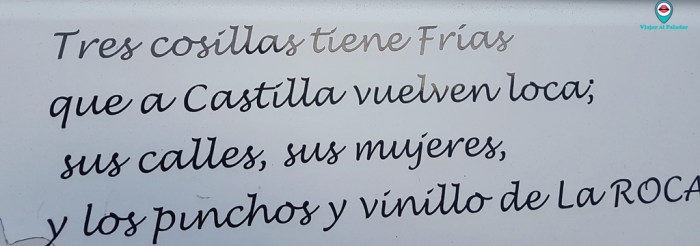 Tres cosillas tiene Frías
que a Castilla vuelven loca;
sus calles, sus mujeres,
y los pinchos y vinillo de La ROCA
Viajar al Paladar